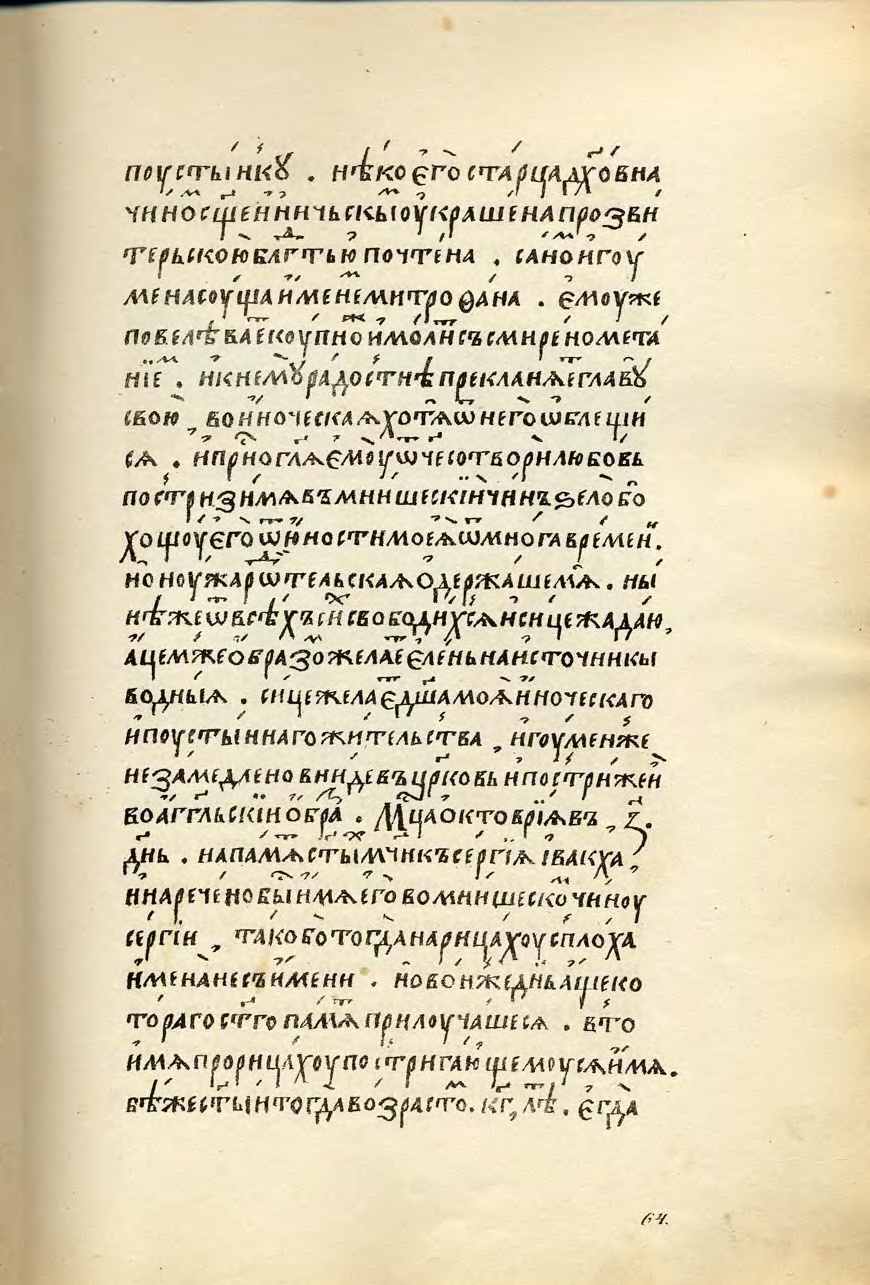 поустынкꙋ . нѣкоєго старца дх҃овна
чиномъ сщ҃енничьскымъ оукрашена прозви
терьскою блг҃дтью почтена . саномъ игоу
мена соуща именемъ митроѳана . ємоуже
повелѣваетъ скоупножъ и молитъ съ смиреномъ мета
ніемъ . и к немꙋ радостнѣ прекланѧетъ главꙋ
свою , во иноческаѧ хотѧ ѿ него ѡблещи
сѧ . и пригл҃ѧ ємоу ѡч҃е сотвори любовь
постризи мѧ въ мнишескіи чинъ ѕело бо
хощоу єго ѿ юности моеѧ ѿ многа времени .
но ноужа родтельскаѧ одержаше мѧ . ны
нѣже ѿ всѣхъ сихъ свободихсѧ и сице жадаю ,
ацемже образомъ желаетъ єлень на источникы
водныѧ . сице желаетъ дш҃а моѧ иноческаго
и поустыннаго жительства , игоуменже
незамедлено вниде въ цр҃ковь и постриже и
во аг҃гльскіи образъ . Мц҃а октовріѧ въ , з҃ .
днь . на памѧть ст҃ыхъ мч҃никъ сергіѧ і вакха ,
и наречено бысть имѧ его во мнишескомъ чиноу
сергіи , тако бо тогда нарицахоу сплоха
имена не съ имени . но воньже днь аще ко
тораго ст҃го памѧть прилоучашесѧ . в то
имѧ прорицахоу постригающемоусѧ имѧ .
бѣже ст҃ыи тогда возрастомъ . кг҃ , лѣтъ . єгда
64.